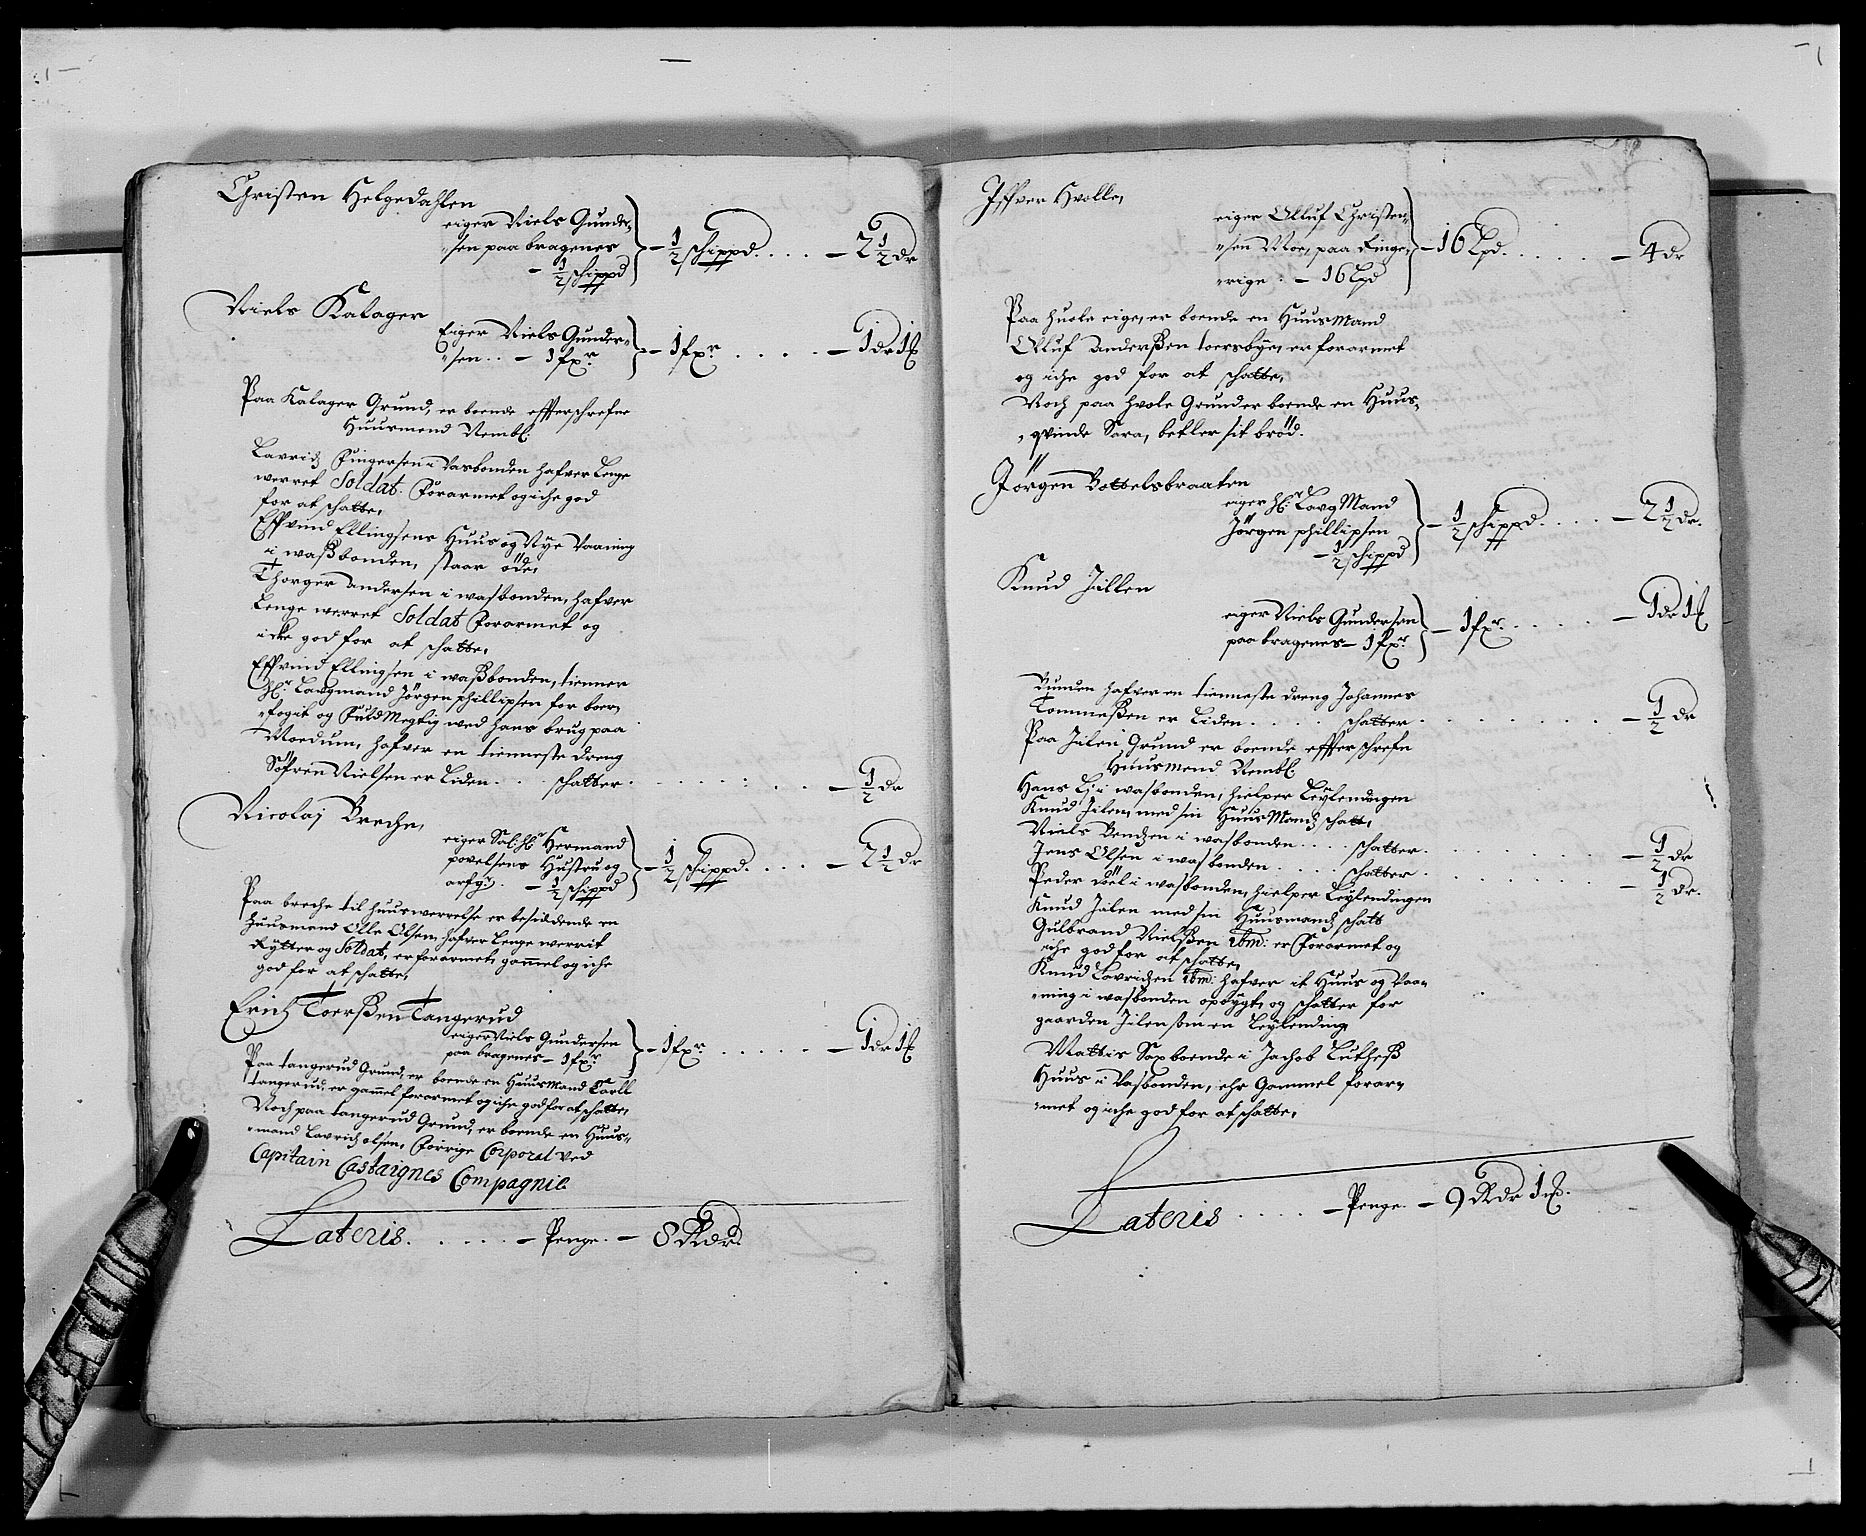 Christen Helgedahlen
eiger Niels Gunder„
„sen paa bragenes – ½ schippd.... – 2½ dr
– ½ schippd
Niels Kalager
Eiger Niels Gunder„
„sen.. – 1 fxr. – 1 fxr.... – 1 dr 1
Paa Kalager Grund, er boende effterschrefne
Huusmend Nembl.
Lavridz i Vasbonden hafver Lenge
werret Soldat. Forarmet og iche god
for at schatte,
Effvind Ellingsens Huus og Nÿe Vaaning
i wasbonden, staar öde,
Thorger Andersen i wasbonden, hafver
Lenge werret Soldat Forarmet og
icke god for at schatte,
Effvind Ellingsen i wasbonden, tienner
Hr. Laugmand Jörgen Phillipsen for boer„
„fogit og Fuldmegtig wed hans brug paa
Moedum, hafver en tienneste dreng
Söfren Nielsen er Liden... schatter...... – ½ dr
Nicolaj Breche,
eiger Sal: Hr Hermand
povelsens Hustru og – ½ schippd.... – 2½ dr
arfg: – ½ schippd
Paa breche til huuswerrelse er besiddende en
Huusmand Olle Olsen, hafver Lenge werrit
Rÿtter og Soldat, er forarmet, gammel og iche
god for at schatte,
Erich Toersen Tangerud
eiger Niels Gundersen
paa bragenes – 1 fxr. – 1 fxr..... – 1 dr 1
Paa tangerud Grund, er boende en Huusmand Carll
tangerud, er gammel forarmet og iche god for at schatte,
Noch paa tangerud Grund, er boende en Huus„
„mand Lavridz olsen, Forrige Corporal ved
Capitain Castaignes Compagnie
Lateris...... – Penge. – 8 Rdr.
Iffver Hvolle,
eiger Olluf Christen„
„sen Moe, paa Ringe„ – 16 Lpd...... – 4 dr
„rige: – 16 Lpd
Paa Huole eige, er boende en Huusmand
Olluf Andersen toersbÿe, er forarmet
og iche god for at schatte,
Noch paa Hvole Grund er boende en Huus„
„qvinde Sara, betler sit bröd.
Jörgen Bottelsbraaten
eiger Hr. Laugmand
Jörgen phillipsen – ½ schippd.... – 2½ dr.
– ½ schippd
Knud Jillen
eiger Niels Gundersen
paa bragenes – 1 fxr. – 1 fxr..... – 1 dr 1
Bunden hafver en tienneste dreng Johannes
Tommessen er Liden.... schatter........ – ½ dr
Paa Jilen Grund er boende effterschrefne
Huusmend Nembl.
Hans Li i wasbonden, hielper Leÿlendingen
Knud Jilen, med sin Huusmandz schatt,
Niels Bentzen i wasbonden.... schatter....... – ½ dr
Jens Olsen i wasbonden..... schatter....... – ½ dr.
Peder Döel i wasbonden, hielper Leÿlendingen
Knud Jilen med sin Huusmandz schatt
Gulbrand Nielssen Ibm: er forarmet og
iche god for at schatte,
Knud Lavridzen Ibm: hafver it Huus og Vaa„
„ning i wasbonden opbÿgt, og schatter for
gaarden Jilen som en Leÿlending
Mattis Sax boende i Jachob Luthess
Huus i Vasbonden, ehr Gammel forar„
„met og iche god for at schatte,
Lateris..... – Penge. – 9 Rdr 1